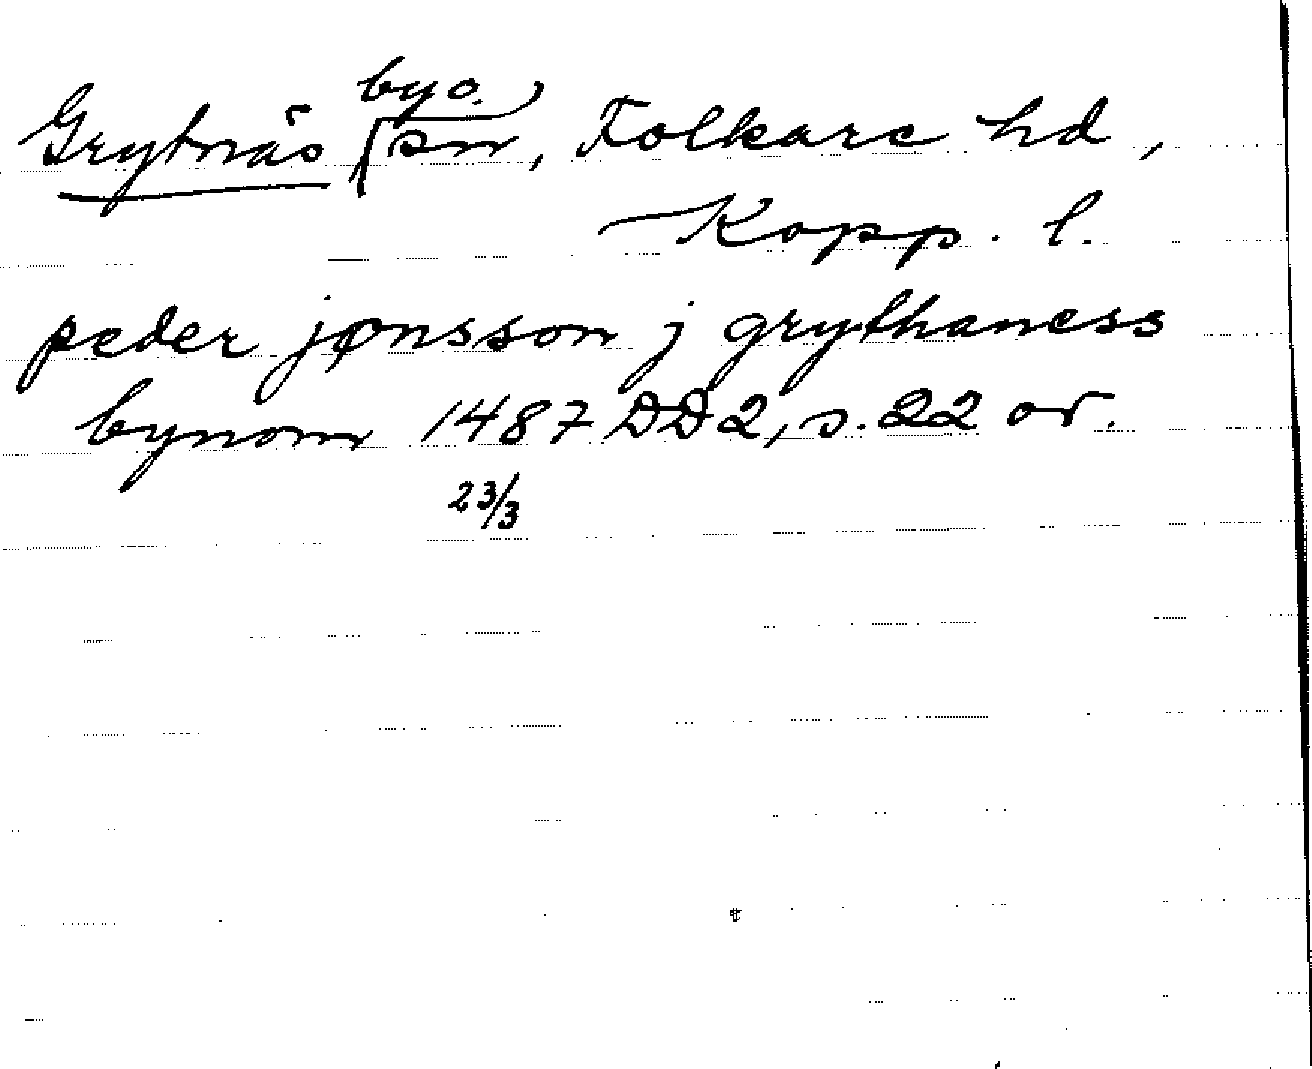 Grytnäs (by o. sn), Folkare hd,
Kopp. l.
peder jønsson j grythaness
bynom 1487 DD2, s. 22 or.
23/3